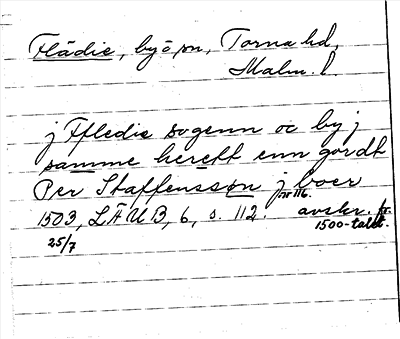 Flädie, by o sn, Torna hd,
Malm. l.
j Ffledie sogenn oc by j
samme herett enn gordt
Per Staffensson j boer
1503, LÄUB, 6, s. 112. nr 116. avskr. fr.
25/7 1500-talet.